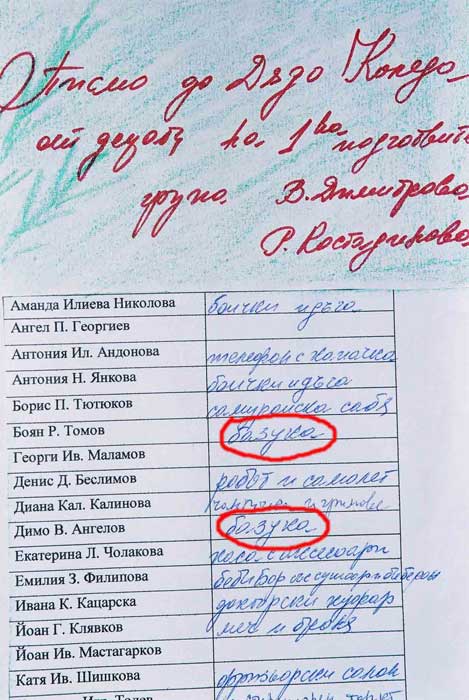 Писмо до Дядо Коледа
от децата на 1ва подготвит.
група В. Димитрова
Р. Костадинова
Аманда Илиева Николова боички и дъга
Ангел П. Георгиев
Антония Ил. Андонова телефон с капачка
Антония Н. Янкова боички и дъга
Борис П. Тютюков самурайска сабя
Боян Р. Томов базука
Георги Ив. Маламов
Денис Д. Беслимов робот и самолет
Диана Кал. Калинова и гримове
Димо В. Ангелов базука
Екатерина Л. Чолакова
Емилия З. Филипова
Ивана К. Кацарска докторски куфар
Йоан Г. Клявков меч и броня
Йоан Ив. Мастагарков
Катя Ив. Шишкова фризьорски салон